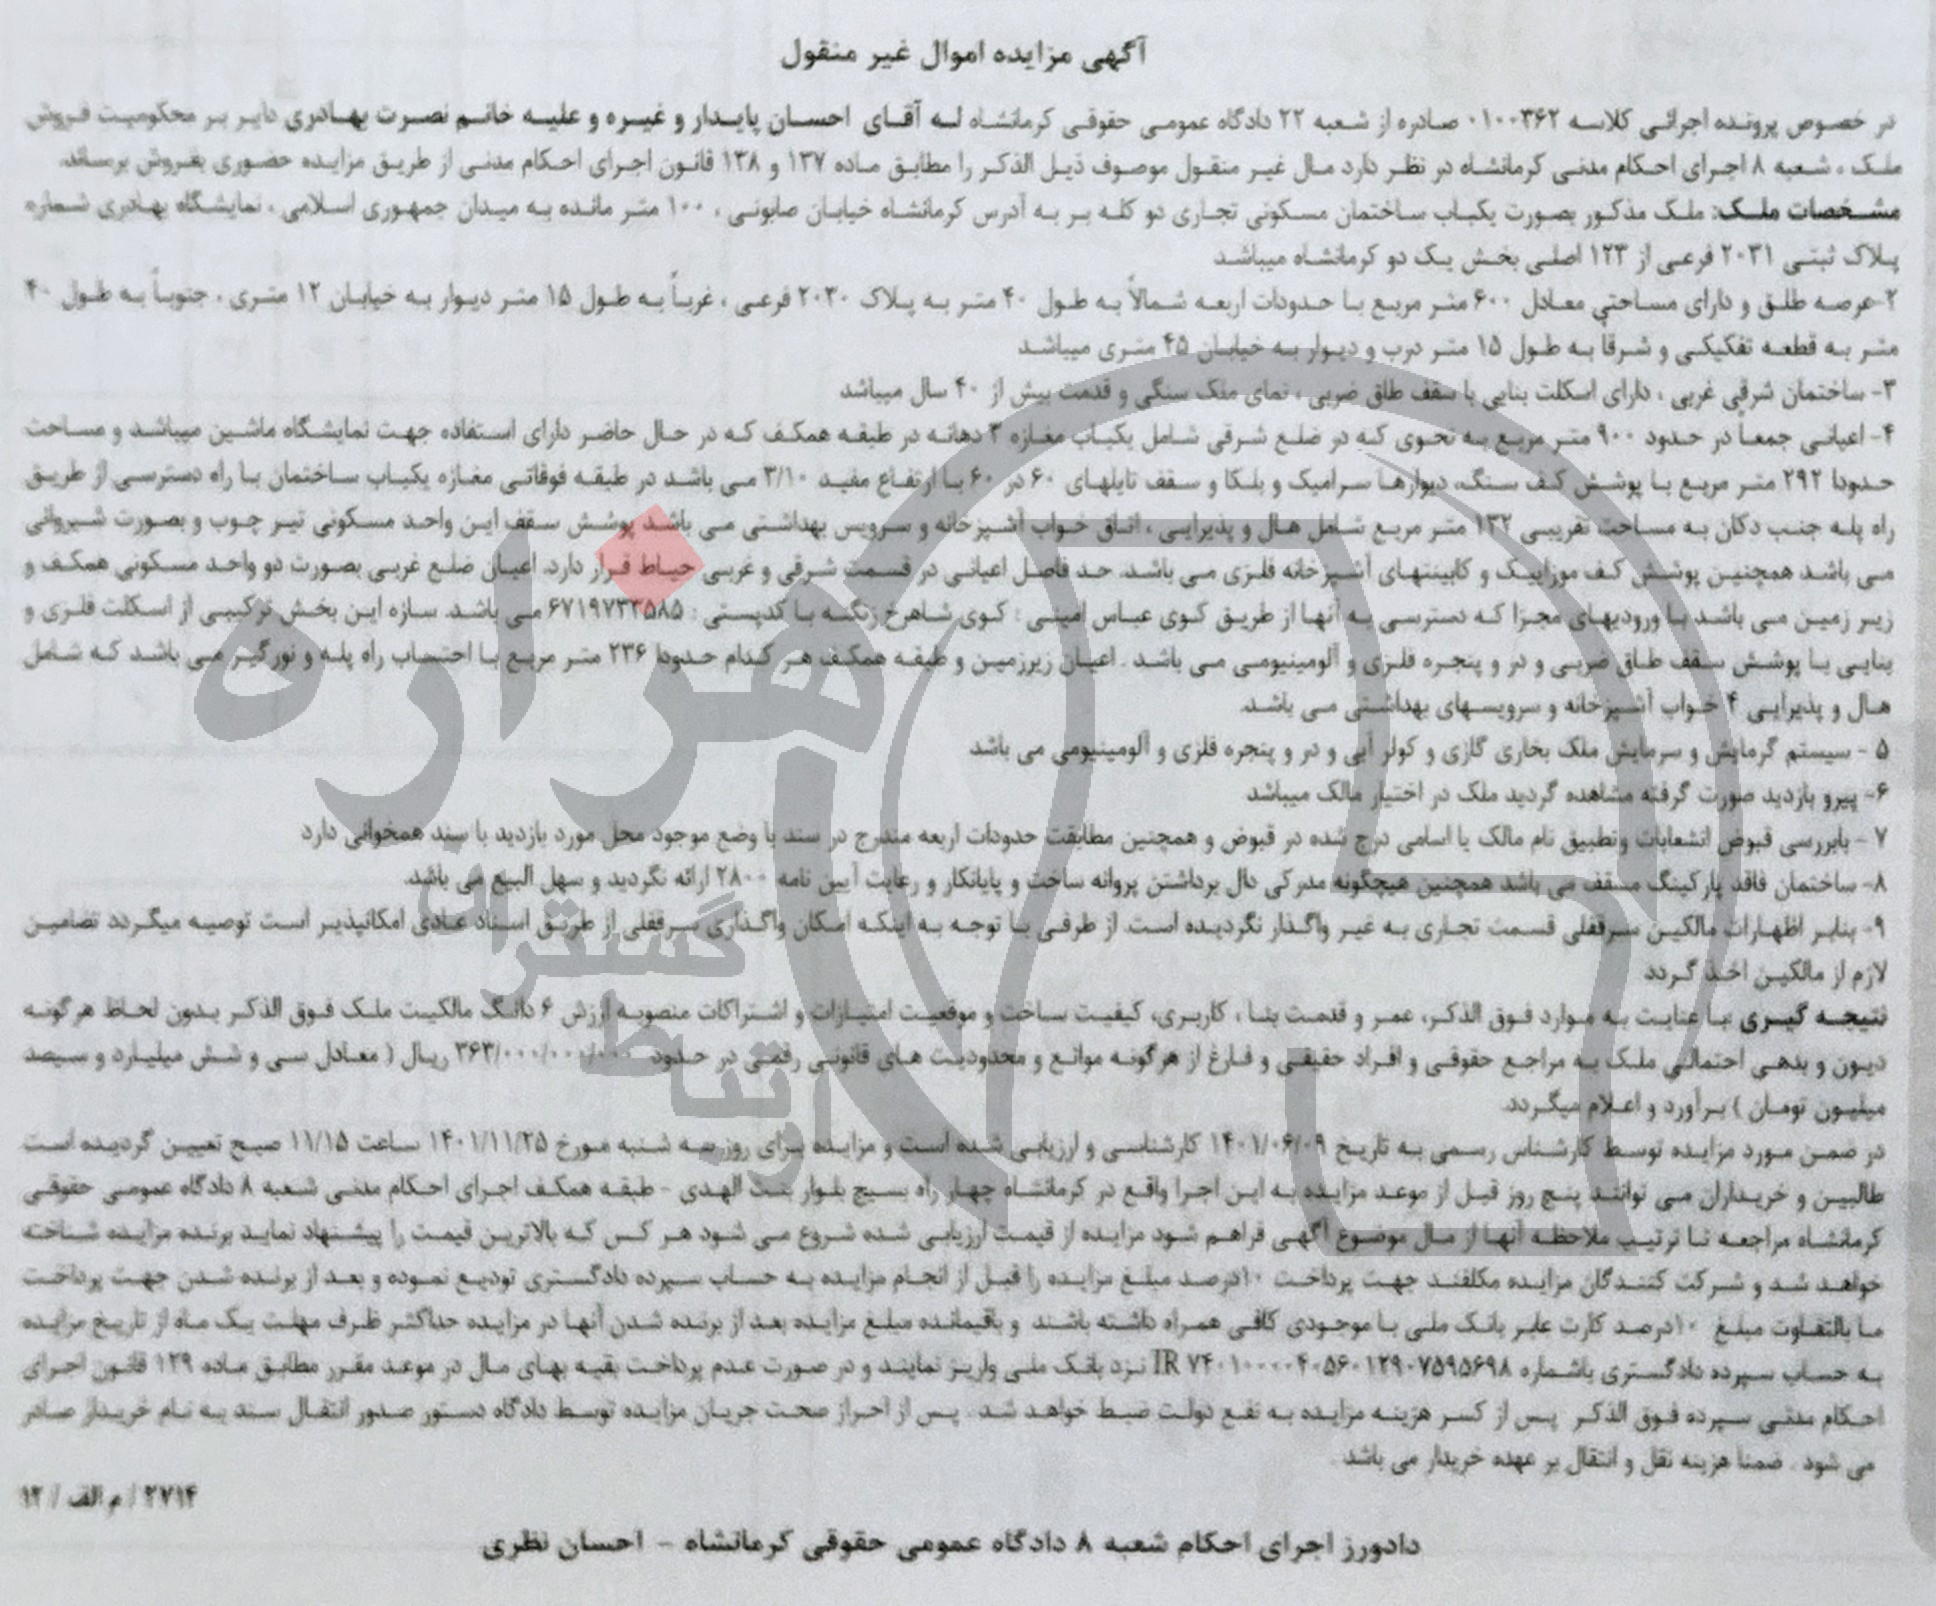 آگهی مزایده اموال غیر منقول
در خصوص پرونده اجرائی کلاسه ۰۱۰۰۳۶۲ صادره از شعبه ۲۲ دادگاه عمومی حقوقی کرمانشاه له آقای احسان پایدار و غیره و علیه خانم نصرت بهادری دایر بر محکومیت فروش
ملک ، شعبه ۸ اجرای احکام مدنی کرمانشاه در نظر دارد مال غیر منقول موصوف ذیل الذکر را مطابق ماده ۱۳۷ و ۱۳۸ قانون اجرای احکام مدنی از طریق مزایده حضوری بفروش برساند.
مشخصات ملک: ملک مذکور بصورت یکباب ساختمان مسکونی تجاری دو کله بر به آدرس کرمانشاه خیابان صابونی ، ۱۰۰ متر مانده به میدان جمهوری اسلامی ، نمایشگاه بهادری شماره
پلاک ثبتی ۲۰۳۱ فرعی از ۱۲۳ اصلی بخش یک دو کرمانشاه میباشد
۲-عرصه طلق و دارای مساحتی معادل ۶۰۰ متر مربع با حدودات اربعه شمالاً به طول ۴۰ متر به پلاک ۲۰۳۰ فرعی ، غرباً به طول ۱۵ متر دیوار به خیابان ۱۲ متری ، جنوباً به طول ۴۰
متر به قطعه تفکیکی و شرقا به طول ۱۵ متر درب و دیوار به خیابان ۴۵ متری میباشد
۳- ساختمان شرقی غربی ، دارای اسکلت بنایی با سقف طاق ضربی ، نمای ملک سنگی و قدمت بیش از ۴۰ سال میباشد
۴- اعیانی جمعاً در حدود ۹۰۰ متر مربع به نحوی که در ضلع شرقی شامل یکباب مغازه ۳ دهانه در طبقه همکف که در حال حاضر دارای استفاده جهت نمایشگاه ماشین میباشد و مساحت
حدودا ۲۹۲ متر مربع با پوشش کف سنگ، دیوارها سرامیک و بلکا و سقف تایلهای ۶۰ در ۶۰ با ارتفاع مفید ۳/۱۰ می باشد در طبقه فوقانی مغازه یکباب ساختمان با راه دسترسی از طریق
راه پله جنب دکان به مساحت تقریبی ۱۳۲ متر مربع شامل هال و پذیرایی ، اتاق خواب آشپزخانه و سرویس بهداشتی می باشد پوشش سقف این واحد مسکونی تیر چوب و بصورت شیروانی
می باشد همچنین پوشش کف موزاییک و کابینتهای آشپزخانه فلزی می باشد. حد فاصل اعیانی در قسمت شرقی و غربی حیاط قرار دارد. اعیان ضلع غربی بصورت دو واحد مسکونی همکف و
زیر زمین می باشد با ورودیهای مجزا که دسترسی به آنها از طریق کوی عباس امینی : کوی شاهرخ زنگنه با کدپستی : ۶۷۱۹۷۳۳۵۸۵ می باشد. سازه این بخش ترکیبی از اسکلت فلزی و
بنایی با پوشش سقف طاق ضربی و در و پنجره فلزی و آلومینیومی می باشد . اعیان زیرزمین و طبقه همکف هر کدام حدودا ۲۳۶ متر مربع با احتساب راه پله و نورگیر می باشد که شامل
هال و پذیرایی ۴ خواب آشپزخانه و سرویسهای بهداشتی می باشد.
۵ - سیستم گرمایش و سرمایش ملک بخاری گازی و کولر آبی و در و پنجره فلزی و آلومینیومی می باشد
۶- پیرو بازدید صورت گرفته مشاهده گردید ملک در اختیار مالک میباشد
۷ - بابررسی قبوض انشعابات وتطبیق نام مالک با اسامی درج شده در قبوض و همچنین مطابقت حدودات اربعه مندرج در سند با وضع موجود محل مورد بازدید با سند همخوانی دارد
۸- ساختمان فاقد پارکینگ مسقف می باشد همچنین هیچگونه مدرکی دال برداشتن پروانه ساخت و پایانکار و رعایت آیین نامه ۲۸۰۰ ارائه نگردید و سهل البیع می باشد.
۹- بنابر اظهارات مالکین سرقفلی قسمت تجاری به غیر واگذار نگردیده است. از طرفی با توجه به اینکه امکان واگذاری سرقفلی از طریق اسناد عادی امکانپذیر است توصیه میگردد تضامین
لازم از مالکین اخذ گردد
نتیجه گیری : با عنایت به موارد فوق الذکر، عمر و قدمت بنا ، کاربری، کیفیت ساخت و موقعیت امتیازات و اشتراکات منصوبه ارزش ۶ دانگ مالکیت ملک فوق الذکر بدون لحاظ هرگونه
دیون و بدهی احتمالی ملک به مراجع حقوقی و افراد حقیقی و فارغ از هرگونه موانع و محدودیت های قانونی رقمی در حدود ۳۶۳/۰۰۰/۰۰۰/۰۰۰ ریال ( معادل سی و شش میلیارد و سیصد
میلیون تومان ) برآورد و اعلام میگردد.
در ضمن مورد مزایده توسط کارشناس رسمی به تاریخ ۱۴۰۱/۰۶/۰۹ کارشناسی و ارزیابی شده است و مزایده برای روز سه شنبه مورخ ۱۴۰۱/۱۱/۲۵ ساعت ۱۱/۱۵ صبح تعیین گردیده است
طالبین و خریداران می توانند پنج روز قبل از موعد مزایده به این اجرا واقع در کرمانشاه چهار راه بسیج بلوار بنت الهدی - طبقه همکف اجرای احکام مدنی شعبه ۸ دادگاه عمومی حقوقی
کرمانشاه مراجعه تا ترتیب ملاحظه آنها از مال موضوع آگهی فراهم شود مزایده از قیمت ارزیابی شده شروع می شود هر کس که بالاترین قیمت را پیشنهاد نماید برنده مزایده شناخته
خواهد شد و شرکت کنندگان مزایده مکلفند جهت پرداخت ۱۰درصد مبلغ مزایده را قبل از انجام مزایده به حساب سپرده دادگستری تودیع نموده و بعد از برنده شدن جهت پرداخت
ما بالتفاوت مبلغ ۱۰درصد کارت عابر بانک ملی با موجودی کافی همراه داشته باشند و باقیمانده مبلغ مزایده بعد از برنده شدن آنها در مزایده حداکثر ظرف مهلت یک ماه از تاریخ مزایده
به حساب سپرده دادگستری باشماره IR ۷۴۰۱۰۰۰۰۴۰۵۶۰۱۲۹۰۷۵۹۵۶۹۸ نزد بانک ملی واریز نمایند و در صورت عدم پرداخت بقیه بهای مال در موعد مقرر مطابق ماده ۱۲۹ قانون اجرای
احکام مدنی سپرده فوق الذکر پس از کسر هزینه مزایده به نفع دولت ضبط خواهد شد . پس از احراز صحت جریان مزایده توسط دادگاه دستور صدور انتقال سند به نام خریدار صادر
می شود . ضمنا هزینه نقل و انتقال بر عهده خریدار می باشد
۲۷۱۴ / م الف / ۱۲
دادورز اجرای احکام شعبه ۸ دادگاه عمومی حقوقی کرمانشاه - احسان نظری
هزاره
گسترش
ارتباط